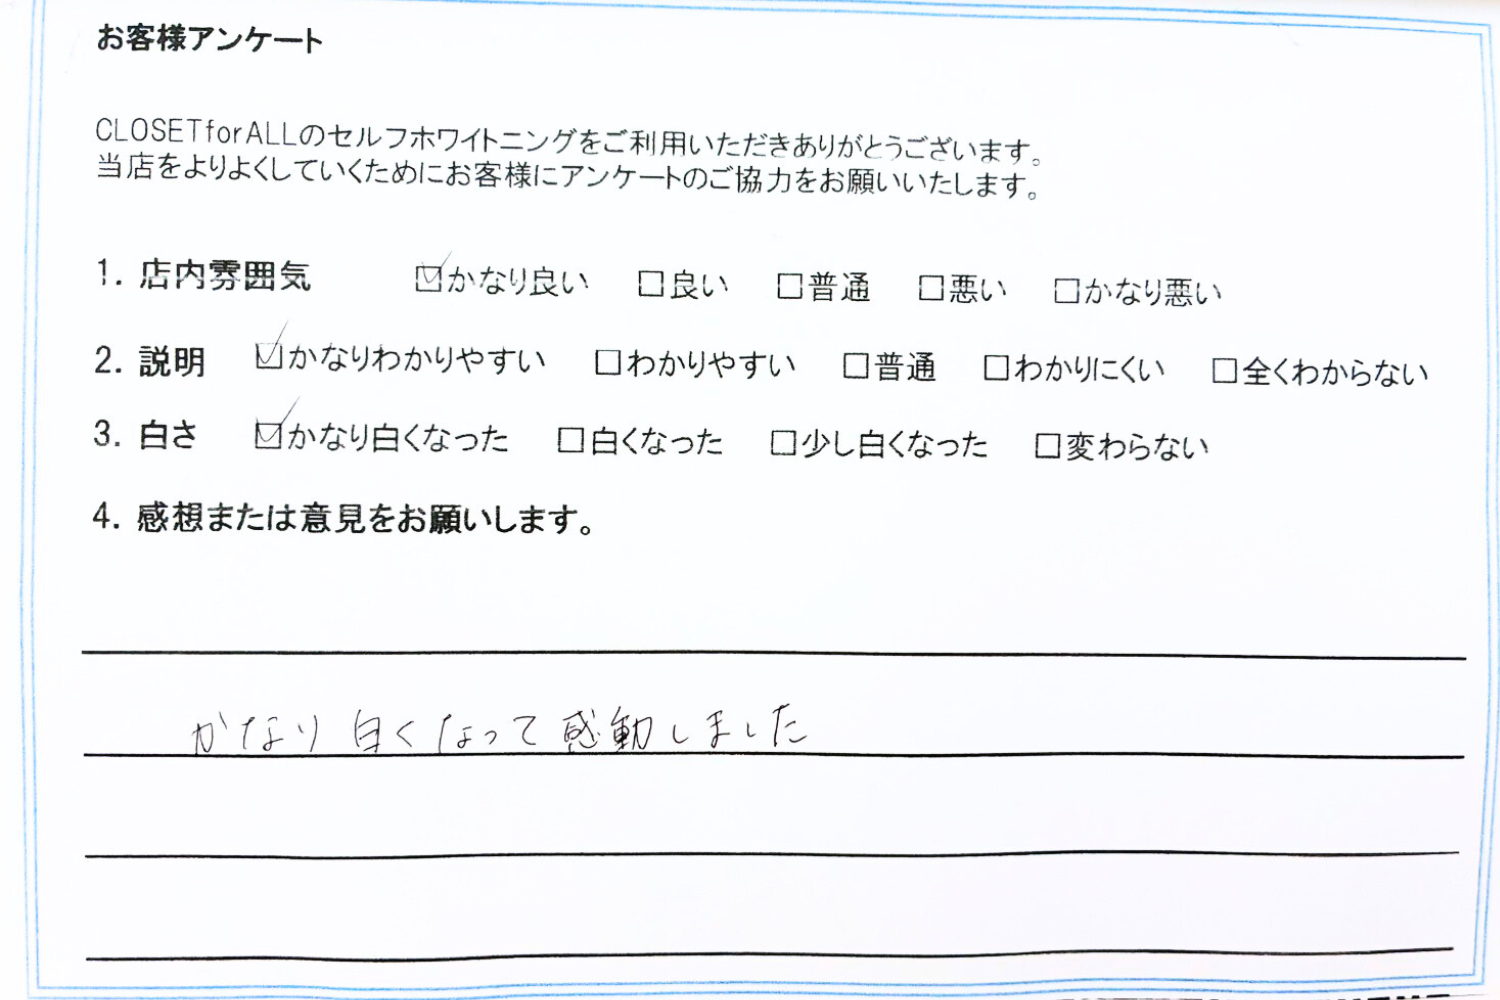 お客様アンケート
CLOSETforALLのセルフホワイトニングをご利用いただきありがとうございます。
当店をよりよくしていくためにお客様にアンケートのご協力をお願いいたします。
1. 店内雰囲気 ☑かなり良い □良い □普通 □悪い □かなり悪い
2. 説明 ☑かなりわかりやすい □わかりやすい □普通 □わかりにくい □全くわからない
3. 白さ ☑かなり白くなった □白くなった □少し白くなった □変わらない
4. 感想または意見をお願いします。
かなり白くなって感動しました